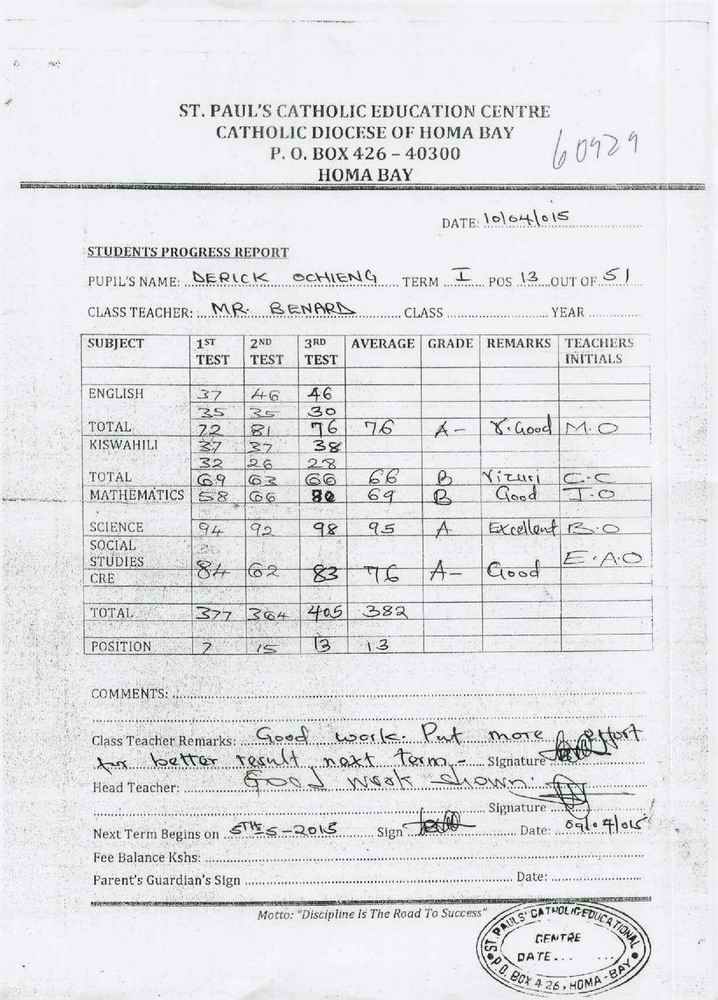 ST. PAUL'S CATHOLIC EDUCATION CENTRE
CATHOLIC DIOCESE OF HOMA BAY
P. O. BOX 426 – 40300
HOMA BAY
60929
DATE: 10/04/015
STUDENTS PROGRESS REPORT
PUPIL'S NAME: DERICK OCHIENG TERM I POS 13 OUT OF 51
CLASS TEACHER: MR. BENARD CLASS YEAR
SUBJECT 1ST TEST 2ND TEST 3RD TEST AVERAGE GRADE REMARKS TEACHERS INITIALS
ENGLISH 37 46 46
35 35 30
TOTAL 72 81 76 76 A- V. Good M.O
KISWAHILI 37 37 38
32 26 28
TOTAL 69 63 66 66 B Vizuri C.C
MATHEMATICS 58 66 80 69 B Good J.O
SCIENCE 94 92 98 95 A Excellent B.O
SOCIAL STUDIES
CRE 84 62 83 76 A- Good E.A.O
TOTAL 377 364 405 382
POSITION 7 15 13 13
COMMENTS:
Class Teacher Remarks: Good work. Put more effort
for better result next term - Signature
Head Teacher: Good work shown.
Signature
Next Term Begins on 5TH 5-2015 Sign Date: 09/04/015
Fee Balance Kshs:
Parent's Guardian's Sign Date:
Motto: "Discipline Is The Road To Success"
ST. PAULS' CATHOLIC EDUCATIONAL
CENTRE
DATE... ...
P.O. BOX 426, HOMA-BAY